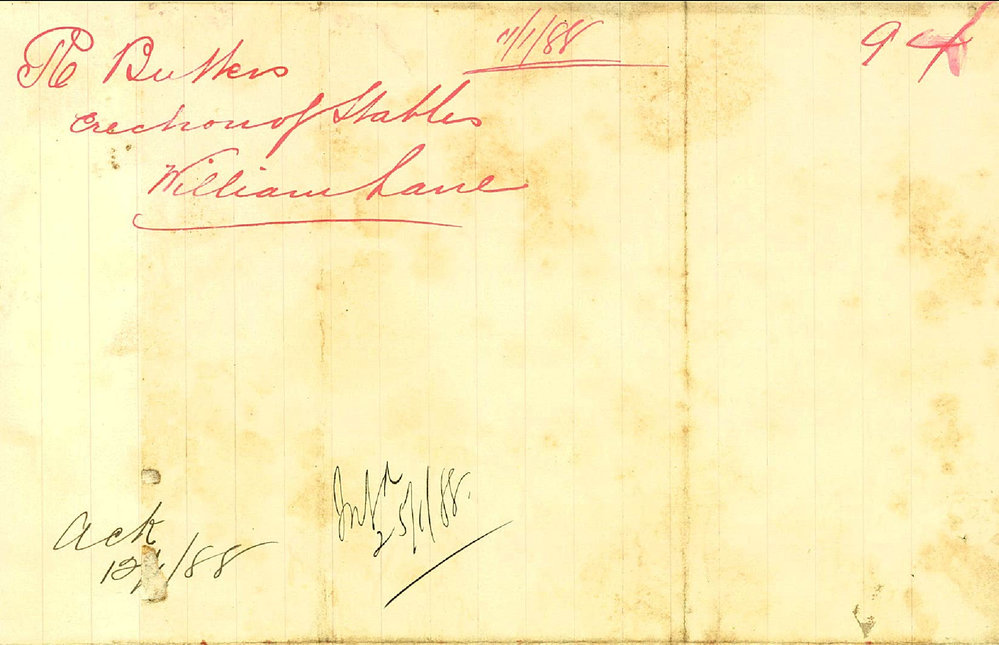 11/1/88
94
Re Butters
erection of Stables
William Lane
Ack
12/1/88
25/1/88